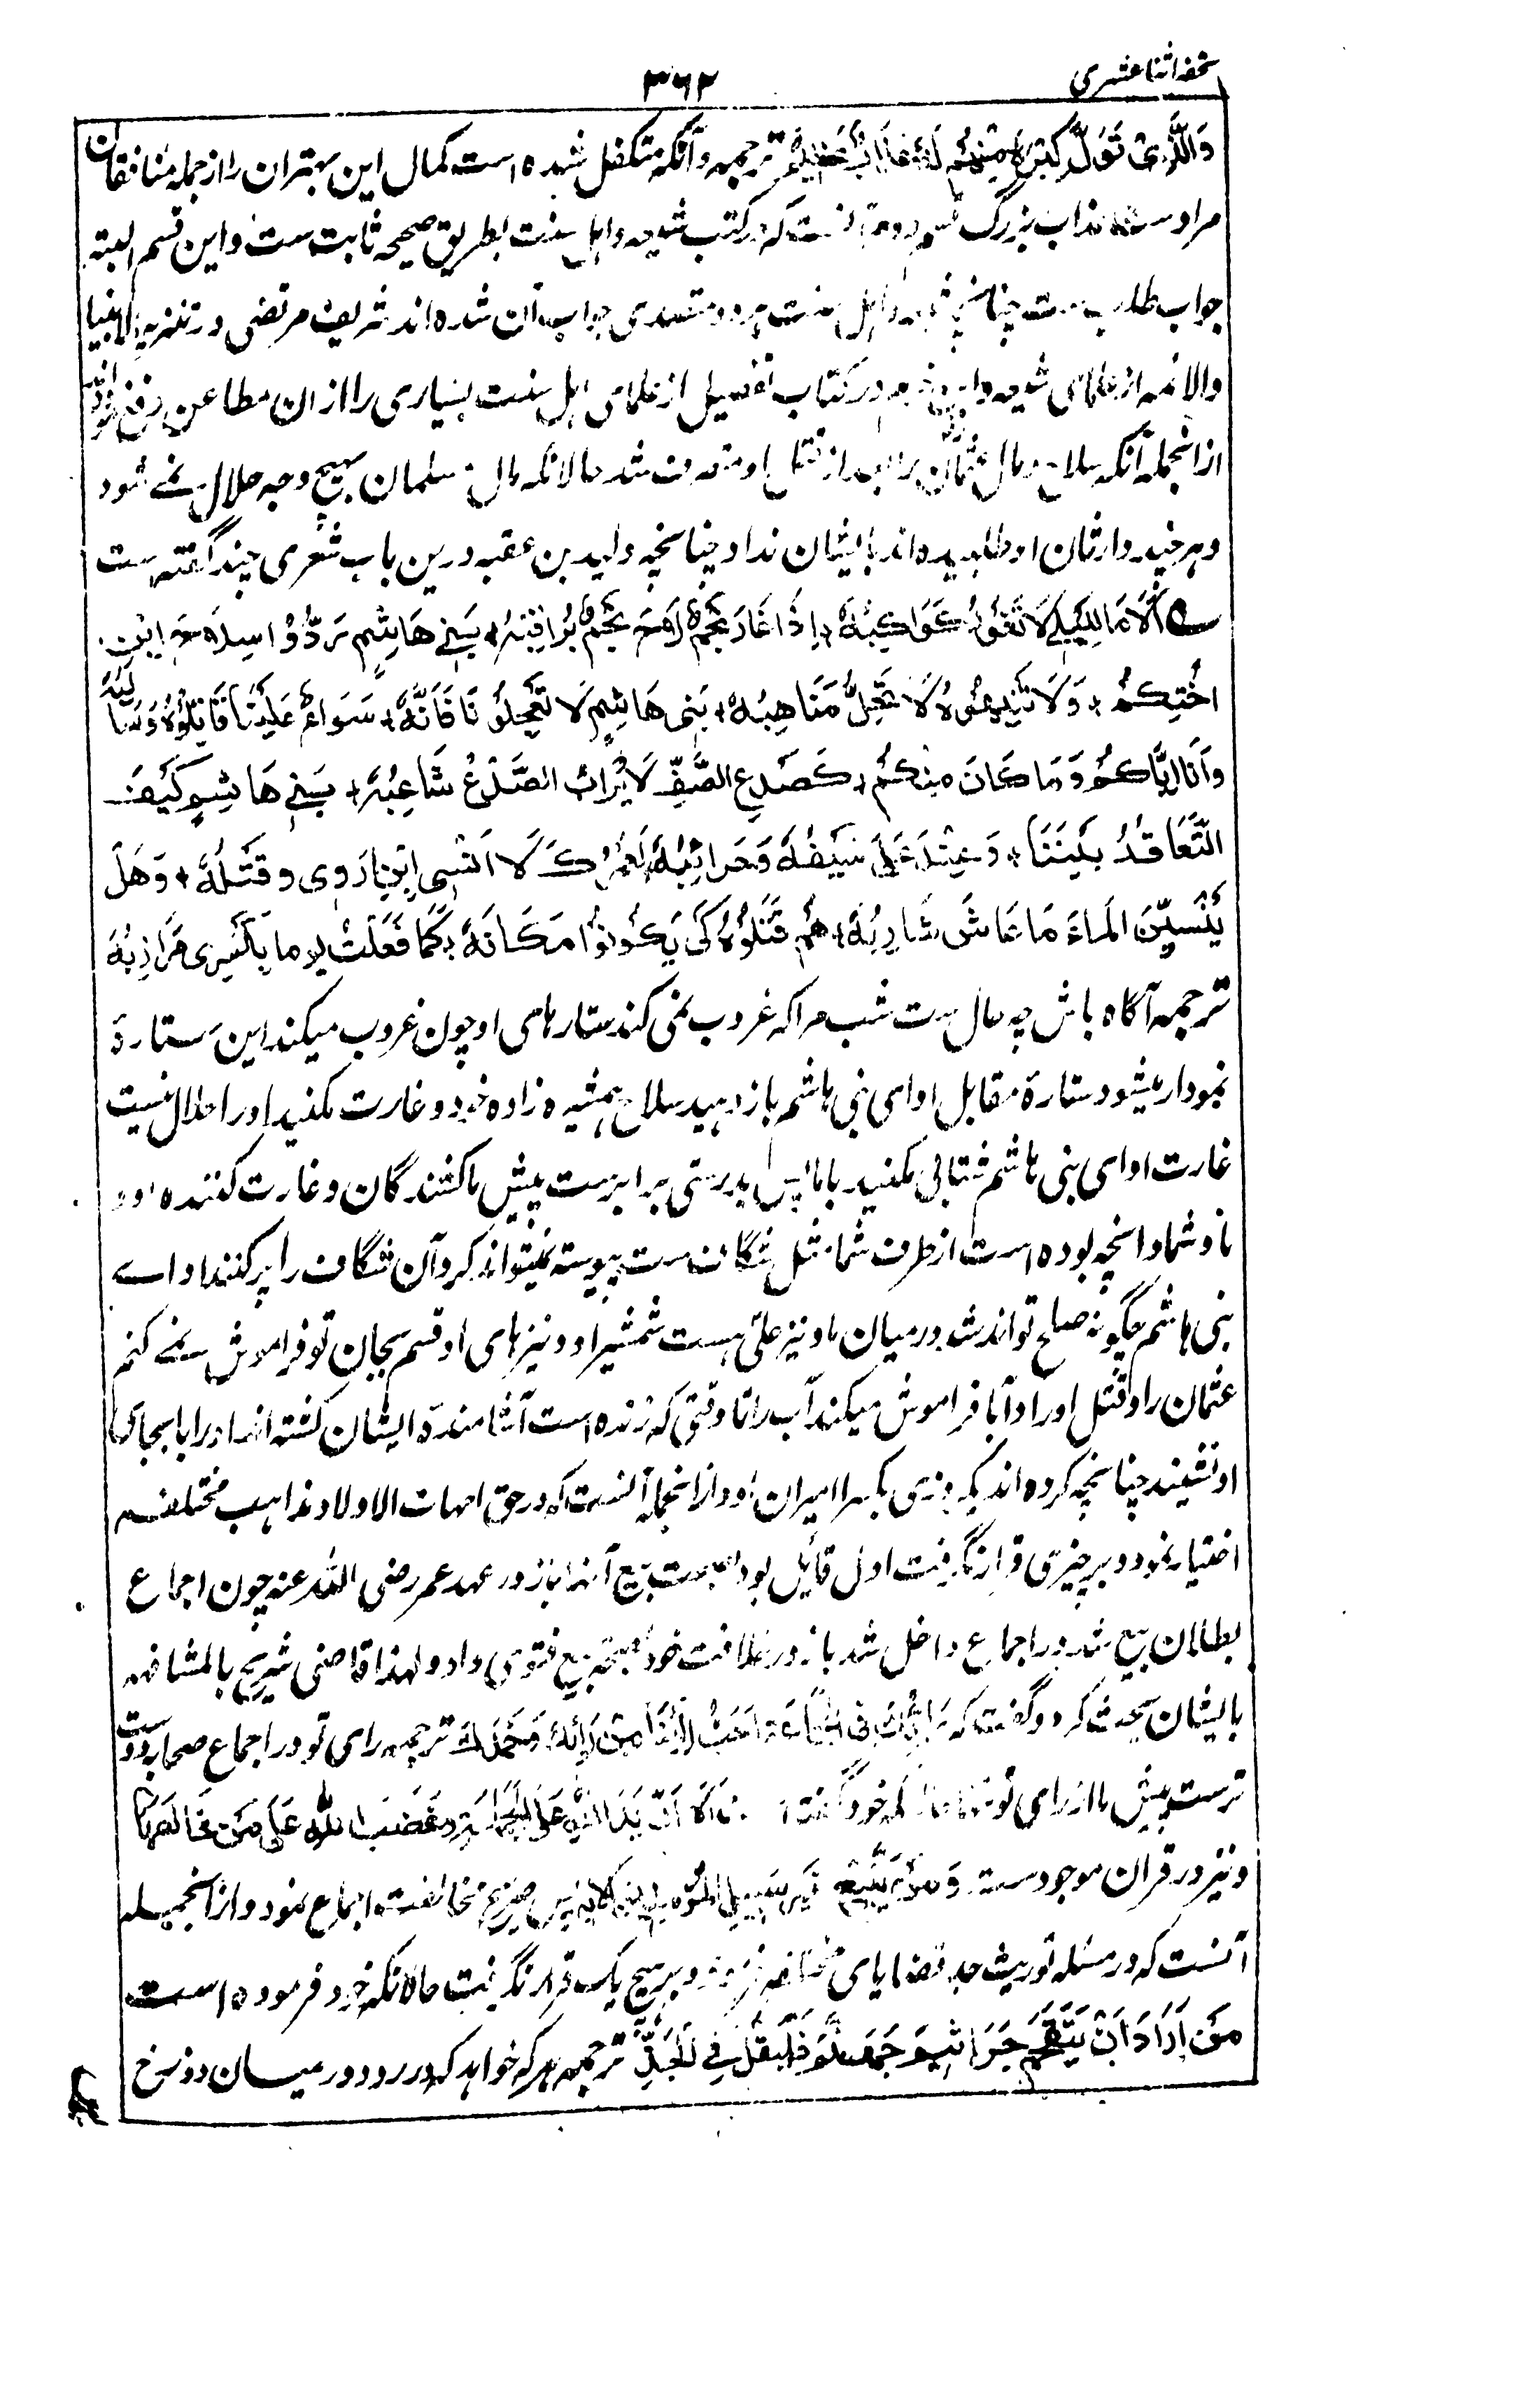 تحفه اثنا عشری
۳۶۲
وَالَّذِیْ تَوَلّٰی كِبْرَهٗ مِنْهُمْ لَهٗ عَذَابٌ عَظِیْمٌ ترجمه وآنكه متكفل شده است كمال این بهتران را ازجمله منافقان
مراوست عذاب بزرگ قسم دوم آنست كه در كتب شیعه واهل سنت بطریق صحیح ثابت ست واین قسم البته
جواب طلب ست چنانچه شیعه واهل سنت هر دو متصدی جواب آن شده اند شریف مرتضی در تنزیه الانبیا
والائمه از علمای شیعه وابن در كتاب تفصیل از علمای اهل سنت بسیاری را ازان مطاعن دفع نموده اند
ازانجمله آنكه سلاح ومال عثمان را بعد از قتل او متصرف شد حالانكه مال مسلمان بهیچ وجه حلال نمے شود
وهرچند وارثان او طلبیده اند بایشان نداد چنانچه ولید بن عقبه درین باب شعری چند گفته ست
اَلَا مَا لِلَیْلِیْ لَا تَغُوْرُ كَوَاكِبُهٗ اِذَا غَارَ نَجْمٌ لَاحَ نَجْمٌ یُرَاقِبُهٗ بَنِیْ هَاشِمٍ رُدُّوْا سِلَاحَ ابْنِ
اُخْتِكُمْ وَلَا تَنْهَبُوْهُ لَا تَحِلُّ مَنَاهِبُهٗ بَنِیْ هَاشِمٍ لَا تُعْجِلُوْنَا فَاِنَّهٗ سَوَاءٌ عَلَیْنَا قَاتِلُوْهُ وَسَالِبُهٗ
وَاَنَا اِیَّاكُمْ وَمَا كَانَ مِنْكُمْ كَصَدْعِ الصَّفَا لَا یَرْأَبُ الصَّدْعَ شَاعِبُهٗ بَنِیْ هَاشِمٍ كَیْفَ
التَّعَاقُدُ بَیْنَنَا وَعِنْدَ عَلِیٍّ سَیْفُهٗ وَحَرَائِبُهٗ لَعَمْرُكَ لَا اَنْسٰی ابْنَ اَرْوٰی وَقَتْلَهٗ وَهَلْ
یَنْسَیَنَّ الْمَاءَ مَا عَاشَ شَارِبُهٗ هُمْ قَتَلُوْهُ كَیْ یَكُوْنُوْا مَكَانَهٗ كَمَا فَعَلَتْ یوما بِكِسْرٰی مَرَازِبُهٗ
ترجمه آگاه باش چه حال ست شب مرا كه غروب نمی كند ستارهای او چون غروب میكند این ستارهٔ
نمودار میشود ستارهٔ مقابل او ای بنی هاشم باز دهید سلاح همشیره زاده خود و غارت مكنید اورا حلال نیست
غارت او ای بنی هاشم شتابی مكنید باما پس بدرستی برابرست پیش ما كشندگان وغارت كننده او و
ما وشما وآنچه بوده است از طرف شما مثل شگاف ست پیوسته نمیتواند كرد آن شگاف را پر كننده او اے
بنی هاشم چگونه صلح تواند شد درمیان ما ونیز علی هست شمشیر او ونیزهای او قسم بجان تو فراموش نمے كنم
عثمان را وقتل اورا وآیا فراموش میكند آب را تا وقتی كه زنده است آشامندهٔ ایشان كشته اند اورا تا بجای
او نشیند چنانچه كرده اند یک روزی بكسرا امیران او وازانجمله آنست كه در حق امهات الاولاد مذاهب مختلفه
اختیار نمود وبر چیزی قرار نگرفت اول قایل بود بصحت بیع آنها باز در عهد عمر رضی الله عنه چون اجماع
بطلان بیع شد در اجماع داخل شد باز در خلافت خود بصحت بیع فتوی داد ولهذا قاضی شریح بالمشافهه
بایشان بحث كرد وگفت كه رَأْیُكَ فِی الْجَمَاعَةِ اَحَبُّ اِلَیْنَا مِنْ رَأْیِكَ وَحْدَكَ ترجمه رای تو در اجماع صحابه دوست
ترست پیش ما از رای تو تنها حالانكه خود گفته اَلَا اِنَّ یَدَ اللهِ عَلَی الْجَمَاعَةِ وَغَضَبَ اللهِ عَلٰی مَنْ خَالَفَهَا
ونیز در قران موجودست وَمَنْ یَتَّبِعْ غَیْرَ سَبِیْلِ الْمُؤْمِنِیْنَ الایه پس صریح مخالفت اجماع نمود وازانجمله
آنست كه در مسئله توریث جد قضایای مختلفه فرمود وبر هیچ یک قرار نگرفت حالانكه خود فرموده است
مَنْ اَرَادَ اَنْ یَتَقَحَّمَ جَرَاثِیْمَ جَهَنَّمَ فَلْیَقُلْ فِی الْجَدِّ ترجمه هر كه خواهد كه در رود درمیان دوزخ